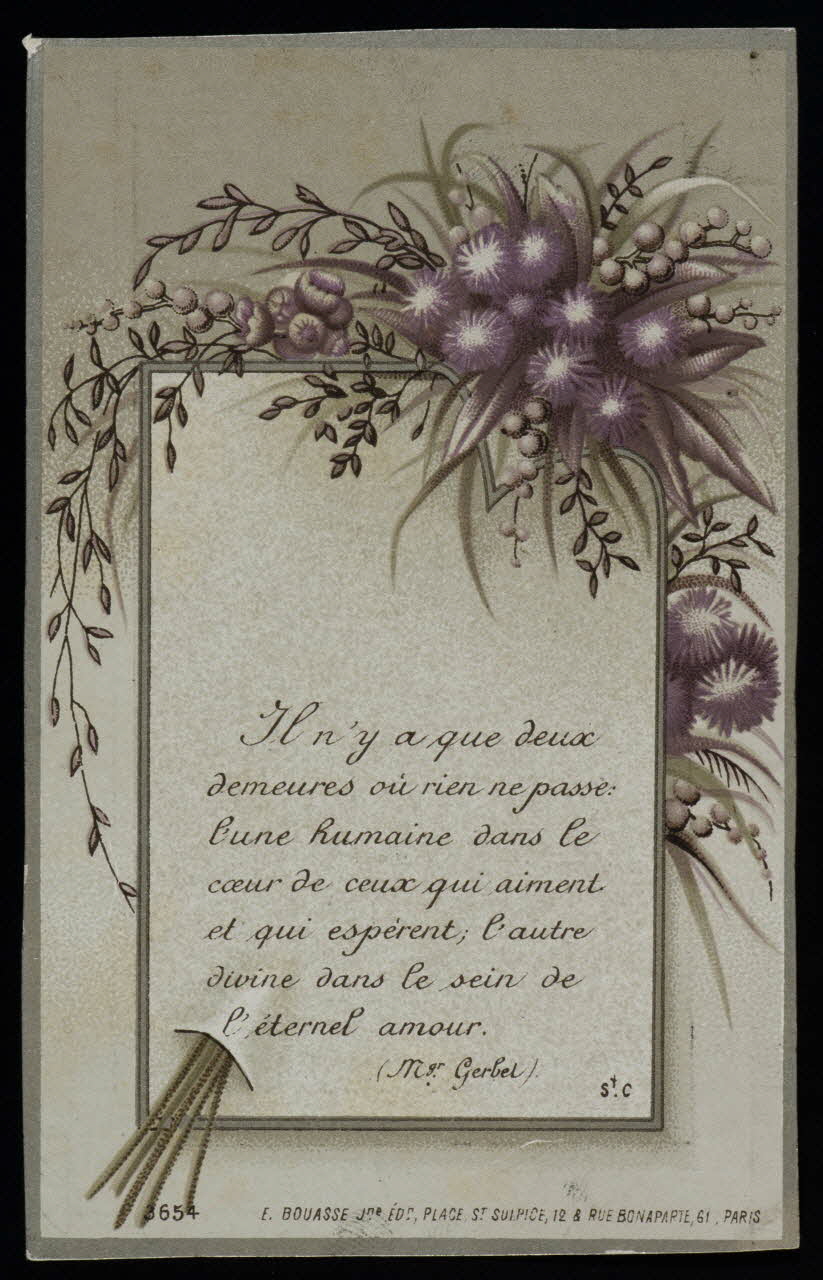 Il n'y a que deux
demeures où rien ne passe:
l'une humaine dans le
cœur de ceux qui aiment
et qui espérent; l'autre
divine dans le sein de
l'éternel amour.
(Mgr Gerbet).
St. C
3654
E. BOUASSE Jne ÉDr, PLACE ST SULPICE, 12 & RUE BONAPARTE, 61, PARIS